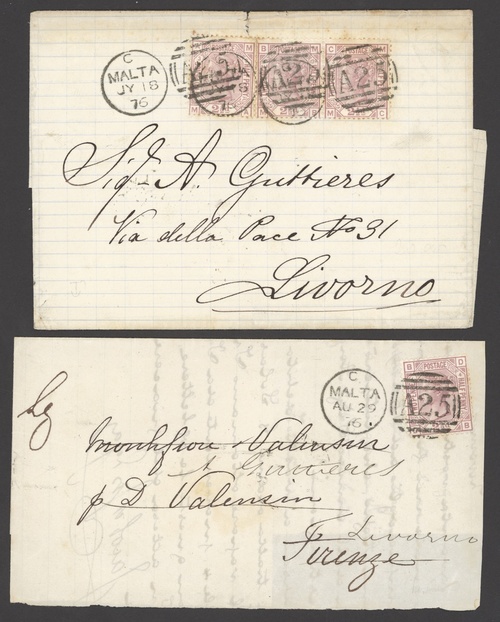 C
MALTA
JY 18
76
A25 A25 A25
Sigr A. Guttieres
Via della Pace No 31
Livorno
C
MALTA
AU 29
76
A25
B POSTAGE D
Valensin
A Guttieres
p D Valensin
Livorno
Firenze